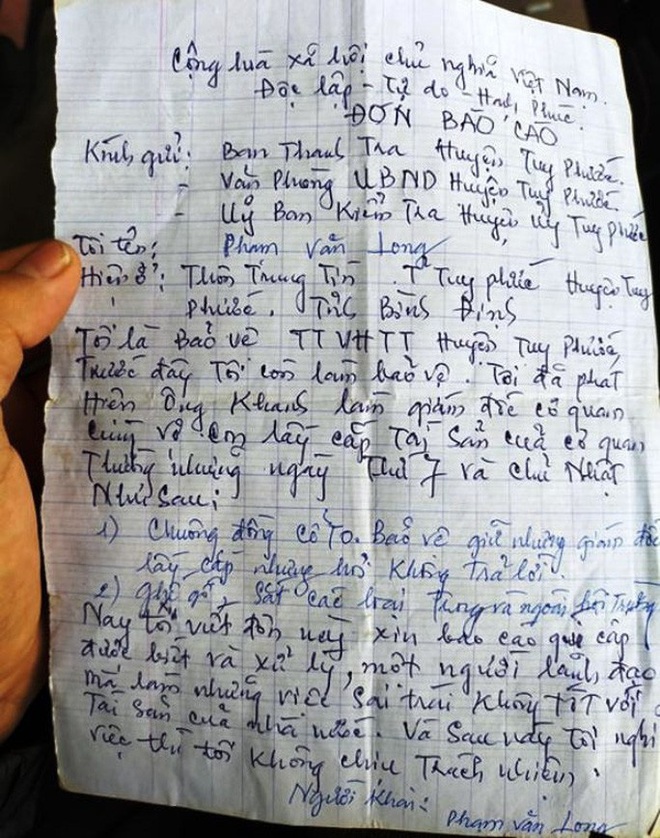 Cộng hoà xã hội chủ nghĩa Việt Nam.
Độc lập - Tự do - Hạnh Phúc.
ĐƠN BÁO CÁO
Kính gửi: Ban Thanh Tra Huyện Tuy Phước.
- Văn Phòng UBND Huyện Tuy Phước.
- Uỷ Ban Kiểm Tra Huyện Uỷ Tuy Phước
Tôi tên: Phạm Văn Long
Hiện ở: Thôn Trung Tín. T² Tuy phước Huyện Tuy
Phước. Tỉnh Bình Định
Tôi là Bảo vệ TTVHTT Huyện Tuy Phước,
Trước đây Tôi còn làm bảo vệ. Tôi đã phát
Hiện Ông Khanh làm giám đốc cơ quan
cùng vợ con lấy cắp Tài Sản của cơ quan
Thường những ngày Thứ 7 và chủ Nhật
Như Sau:
1) Chuông đồng cổ To. Bảo vệ giữ nhưng giám đốc
lấy cắp nhưng hỏi không trả lời.
2) ghế gỗ, Sắt các loại Trong và ngoài hội Trường
Nay tôi viết đơn này xin báo cáo quý cấp
được biết và xử lý, một người lãnh đạo
mà làm những việc sai trái không tốt với
Tài Sản của nhà nước. Và Sau này Tôi nghỉ
việc thì tôi không chịu Trách nhiệm.
Người Khai:
Phạm Văn Long